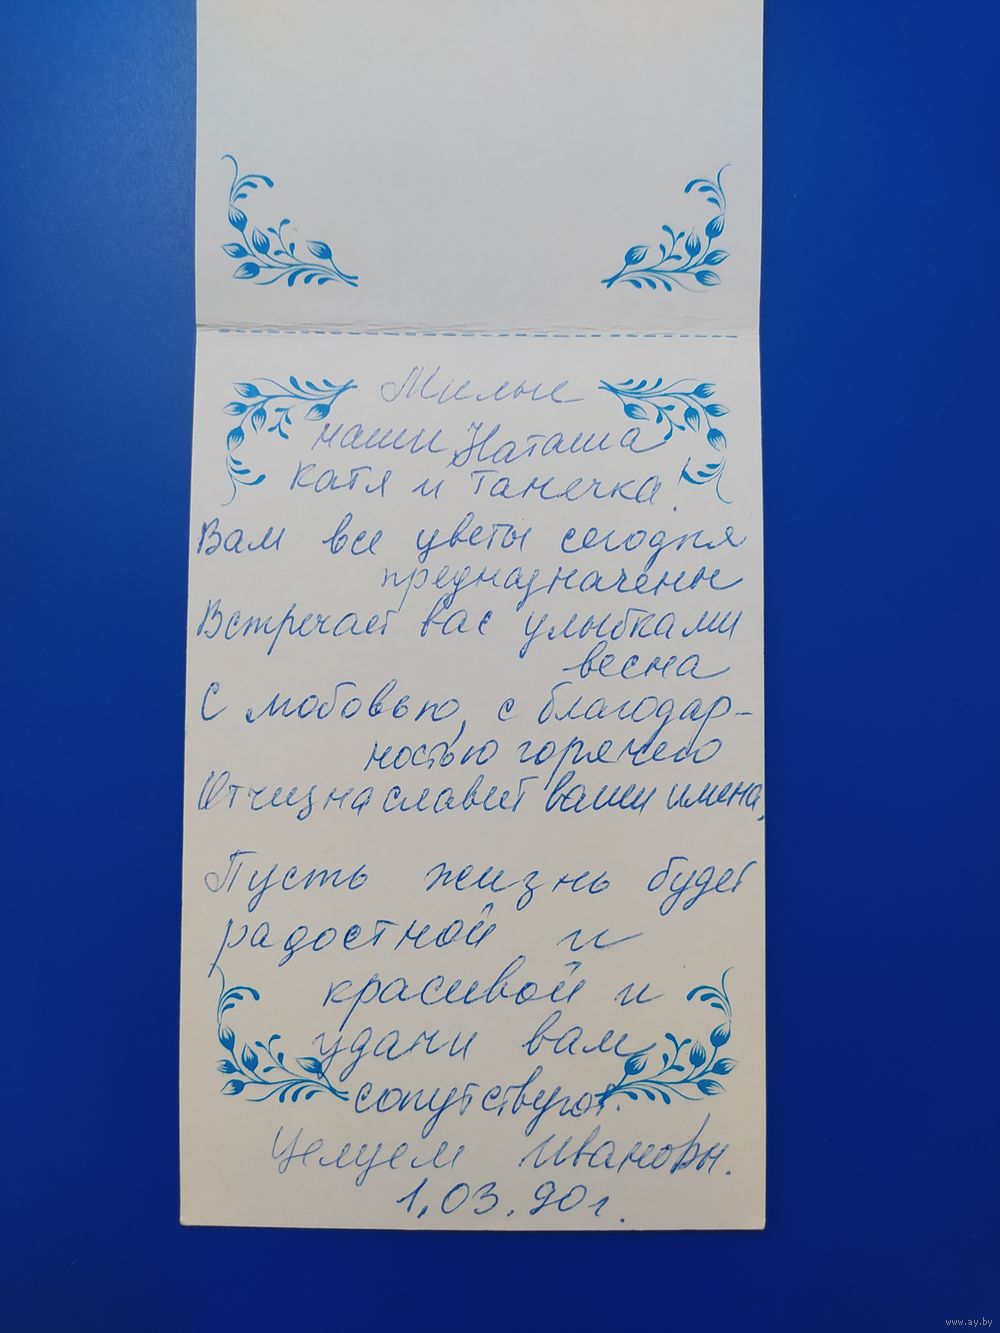 Милые
наши Наташа
Катя и Танечка!
Вам все цветы сегодня
предназначены
Встречает вас улыбками
весна
С любовью, с благодар-
ностью горячею
Отчизна славит ваши имена.
Пусть жизнь будет
радостной и
красивой и
удачи вам
сопутствуют.
Целуем Ивановы.
1.03.90 г.
www.ay.by